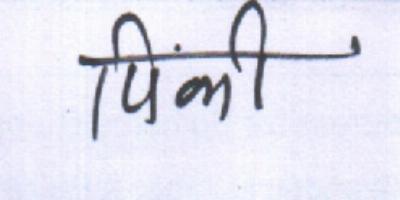 पिंकी